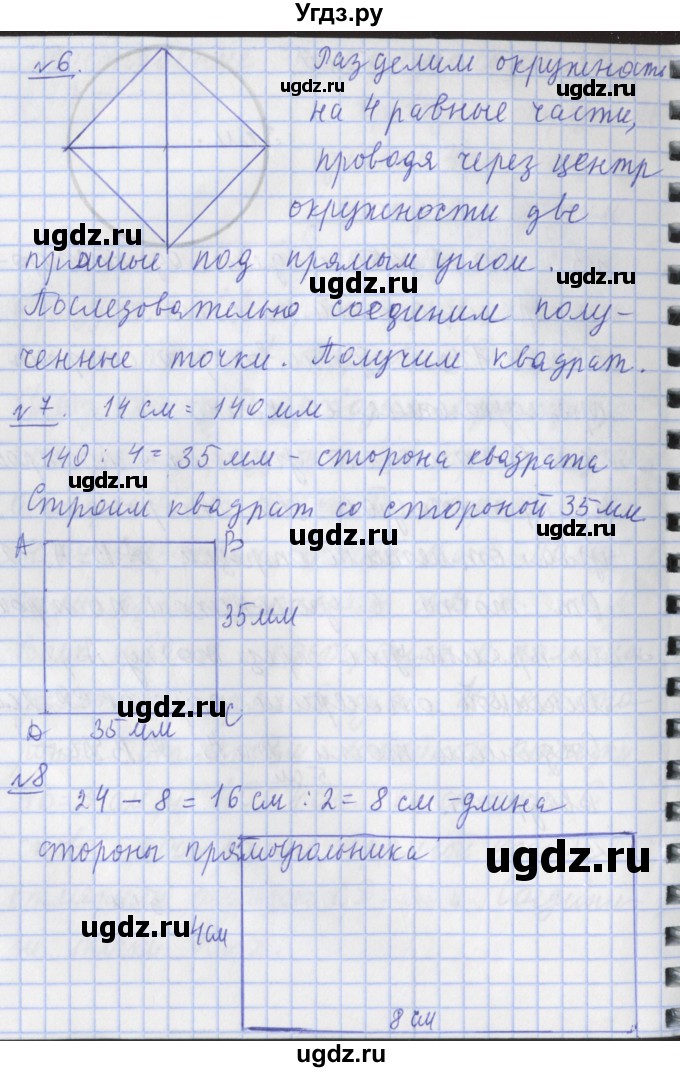 Угдз.ру
№6.
Разделим окружность
на 4 равные части,
проводя через центр
окружности две
прямые под прямым углом.
Последовательно соединим полу-
ченные точки. Получим квадрат.
№7. 14 см = 140 мм
140 : 4 = 35 мм - сторона квадрата
Строим квадрат со стороной 35 мм
A B
35 мм
D C
35 мм
№8
24 - 8 = 16 см : 2 = 8 см - длина
стороны прямоугольника
4 см
8 см
ugdz.ru
ugdz.ru
ugdz.ru
ugdz.ru
ugdz.ru
ugdz.ru
ugdz.ru
ugdz.ru
ugdz.ru
ugdz.ru
ugdz.ru
ugdz.ru